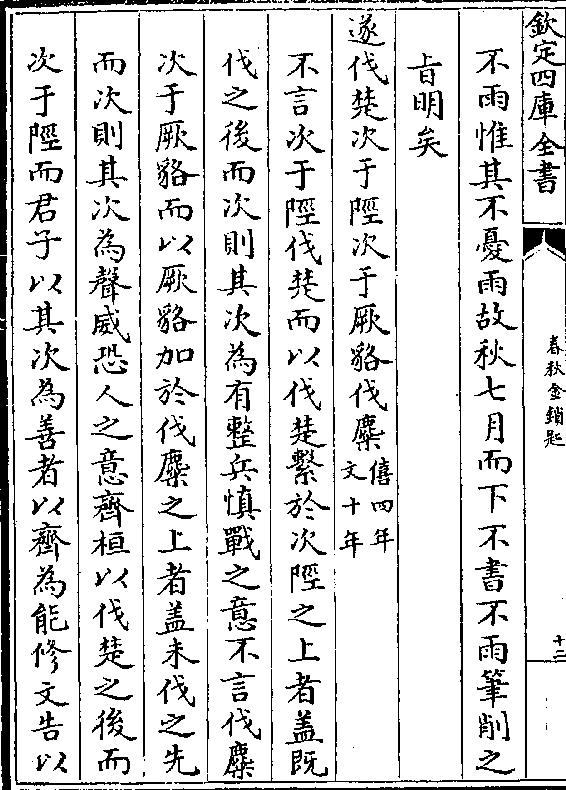 欽定四庫全書
春秋金鎖匙
十二
不雨惟其不憂雨故秋七月而下不書不雨筆削之
旨明矣
遂伐楚次于陘次于厥貉伐麋僖四年文十年
不言次于陘伐楚而以伐楚繫於次陘之上者盖既
伐之後而次則其次為有整兵慎戰之意不言伐麋
次于厥貉而以厥貉加於伐麋之上者盖未伐之先
而次則其次為聲威恐人之意齊桓以伐楚之後而
次于陘而君子以其次為善者以齊為能修文告以